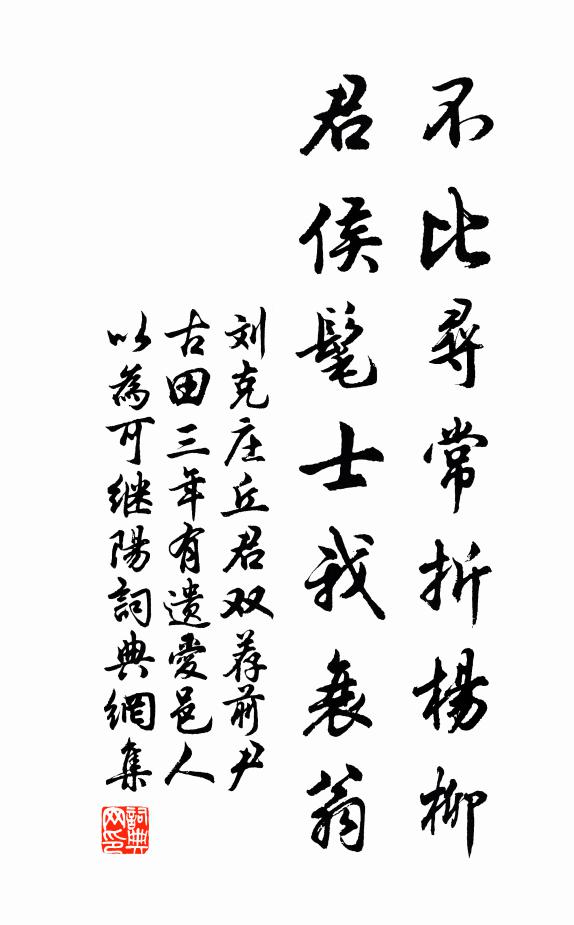 不比尋常折楊柳
君侯髦士我衰翁
刘克庄丘君双荐前尹
古田三年有遗愛邑人
以為可继陽詞典網集
詞典网印